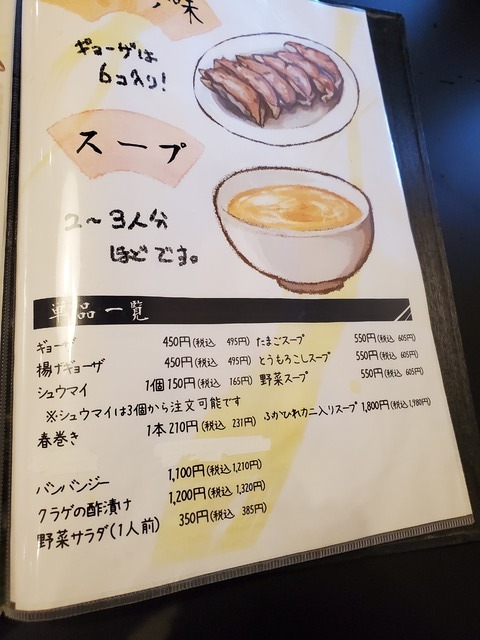 味
ギョーザは
6コ入り!
スープ
2～3人分
ほどです。
単品一覧
ギョーザ 450円(税込 495円)
揚げギョーザ 450円(税込 495円)
シュウマイ 1個150円(税込 165円)
※シュウマイは3個から注文可能です
春巻き 1本210円(税込 231円)
バンバンジー 1,100円(税込1,210円)
クラゲの酢漬け 1,200円(税込 1,320円)
野菜サラダ(1人前) 350円(税込 385円)
たまごスープ 550円(税込 605円)
とうもろこしスープ 550円(税込 605円)
野菜スープ 550円(税込 605円)
ふかひれカニ入りスープ 1,800円(税込1,980円)